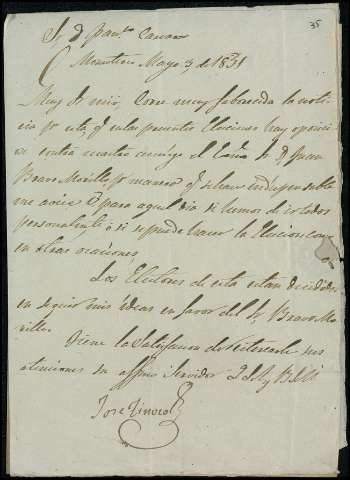 35
Sr. D. Franco
Mayo 3, de 1851
Muy Sr. mio, Corre muy la noti
cia por esta, q. en las presentes Elecciones hay oposici
on contra nuestro amigo el Sr. D. Juan
Bravo Murillo, por manera q. se hace indispensable
me avise V. para aquel dia si hemos de ir todos
personalmente ó si se puede hacer la Eleccion como
en otras ocaciones.
Los Electores de esta estan decididos
en seguir mis ideas en favor del Sr. Bravo Mu
rillo.
Tiene la Satisfaccion de reiterarle sus
atenciones su affmo Servidor Q. B. S. M.
Jose Tinoco